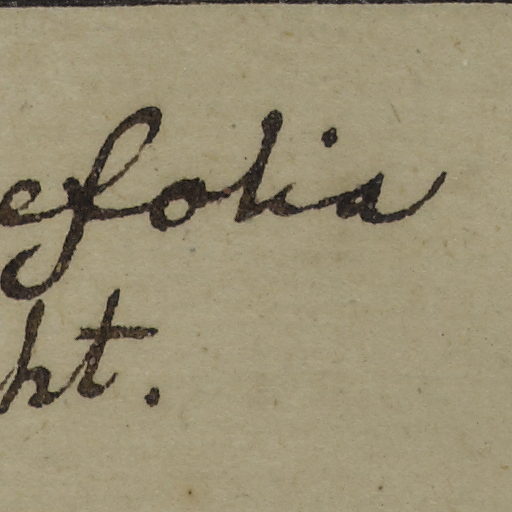 efolia
ht.